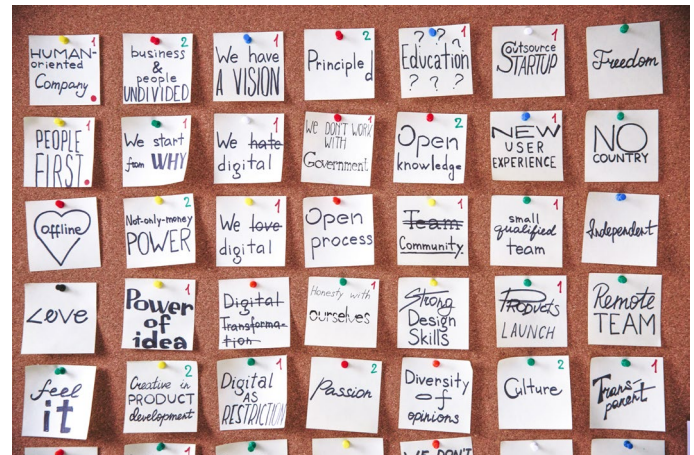 HUMAN-
oriented
Company
1
business
&
people
UNDIVIDED
2
We have
A VISION
1
Principled
2
Education
? ? ?
? ? ?
1
Outsource
STARTUP
1
Freedom
PEOPLE
FIRST
1
We start
from WHY
1
We hate
digital
1
We DON'T WORK
WITH
Government
1
Open
knowledge
2
NEW
USER
EXPERIENCE
1
NO
COUNTRY
offline
Not-only-money
POWER
2
We love
digital
1
Open
process
Team
Community
1
small
qualified
team
1
Independent
Love
Power
of
idea
1
Digital
Transforma-
tion
Honesty with
ourselves
1
Strong
Design
Skills
Products
LAUNCH
1
Remote
TEAM
feel
it
Creative in
PRODUCT
development
2
Digital
AS
RESTRICTION
1
Passion
2
Diversity
of
opinions
Culture
2
Trans-
parent
1
1
1
2
WE DON'T
1